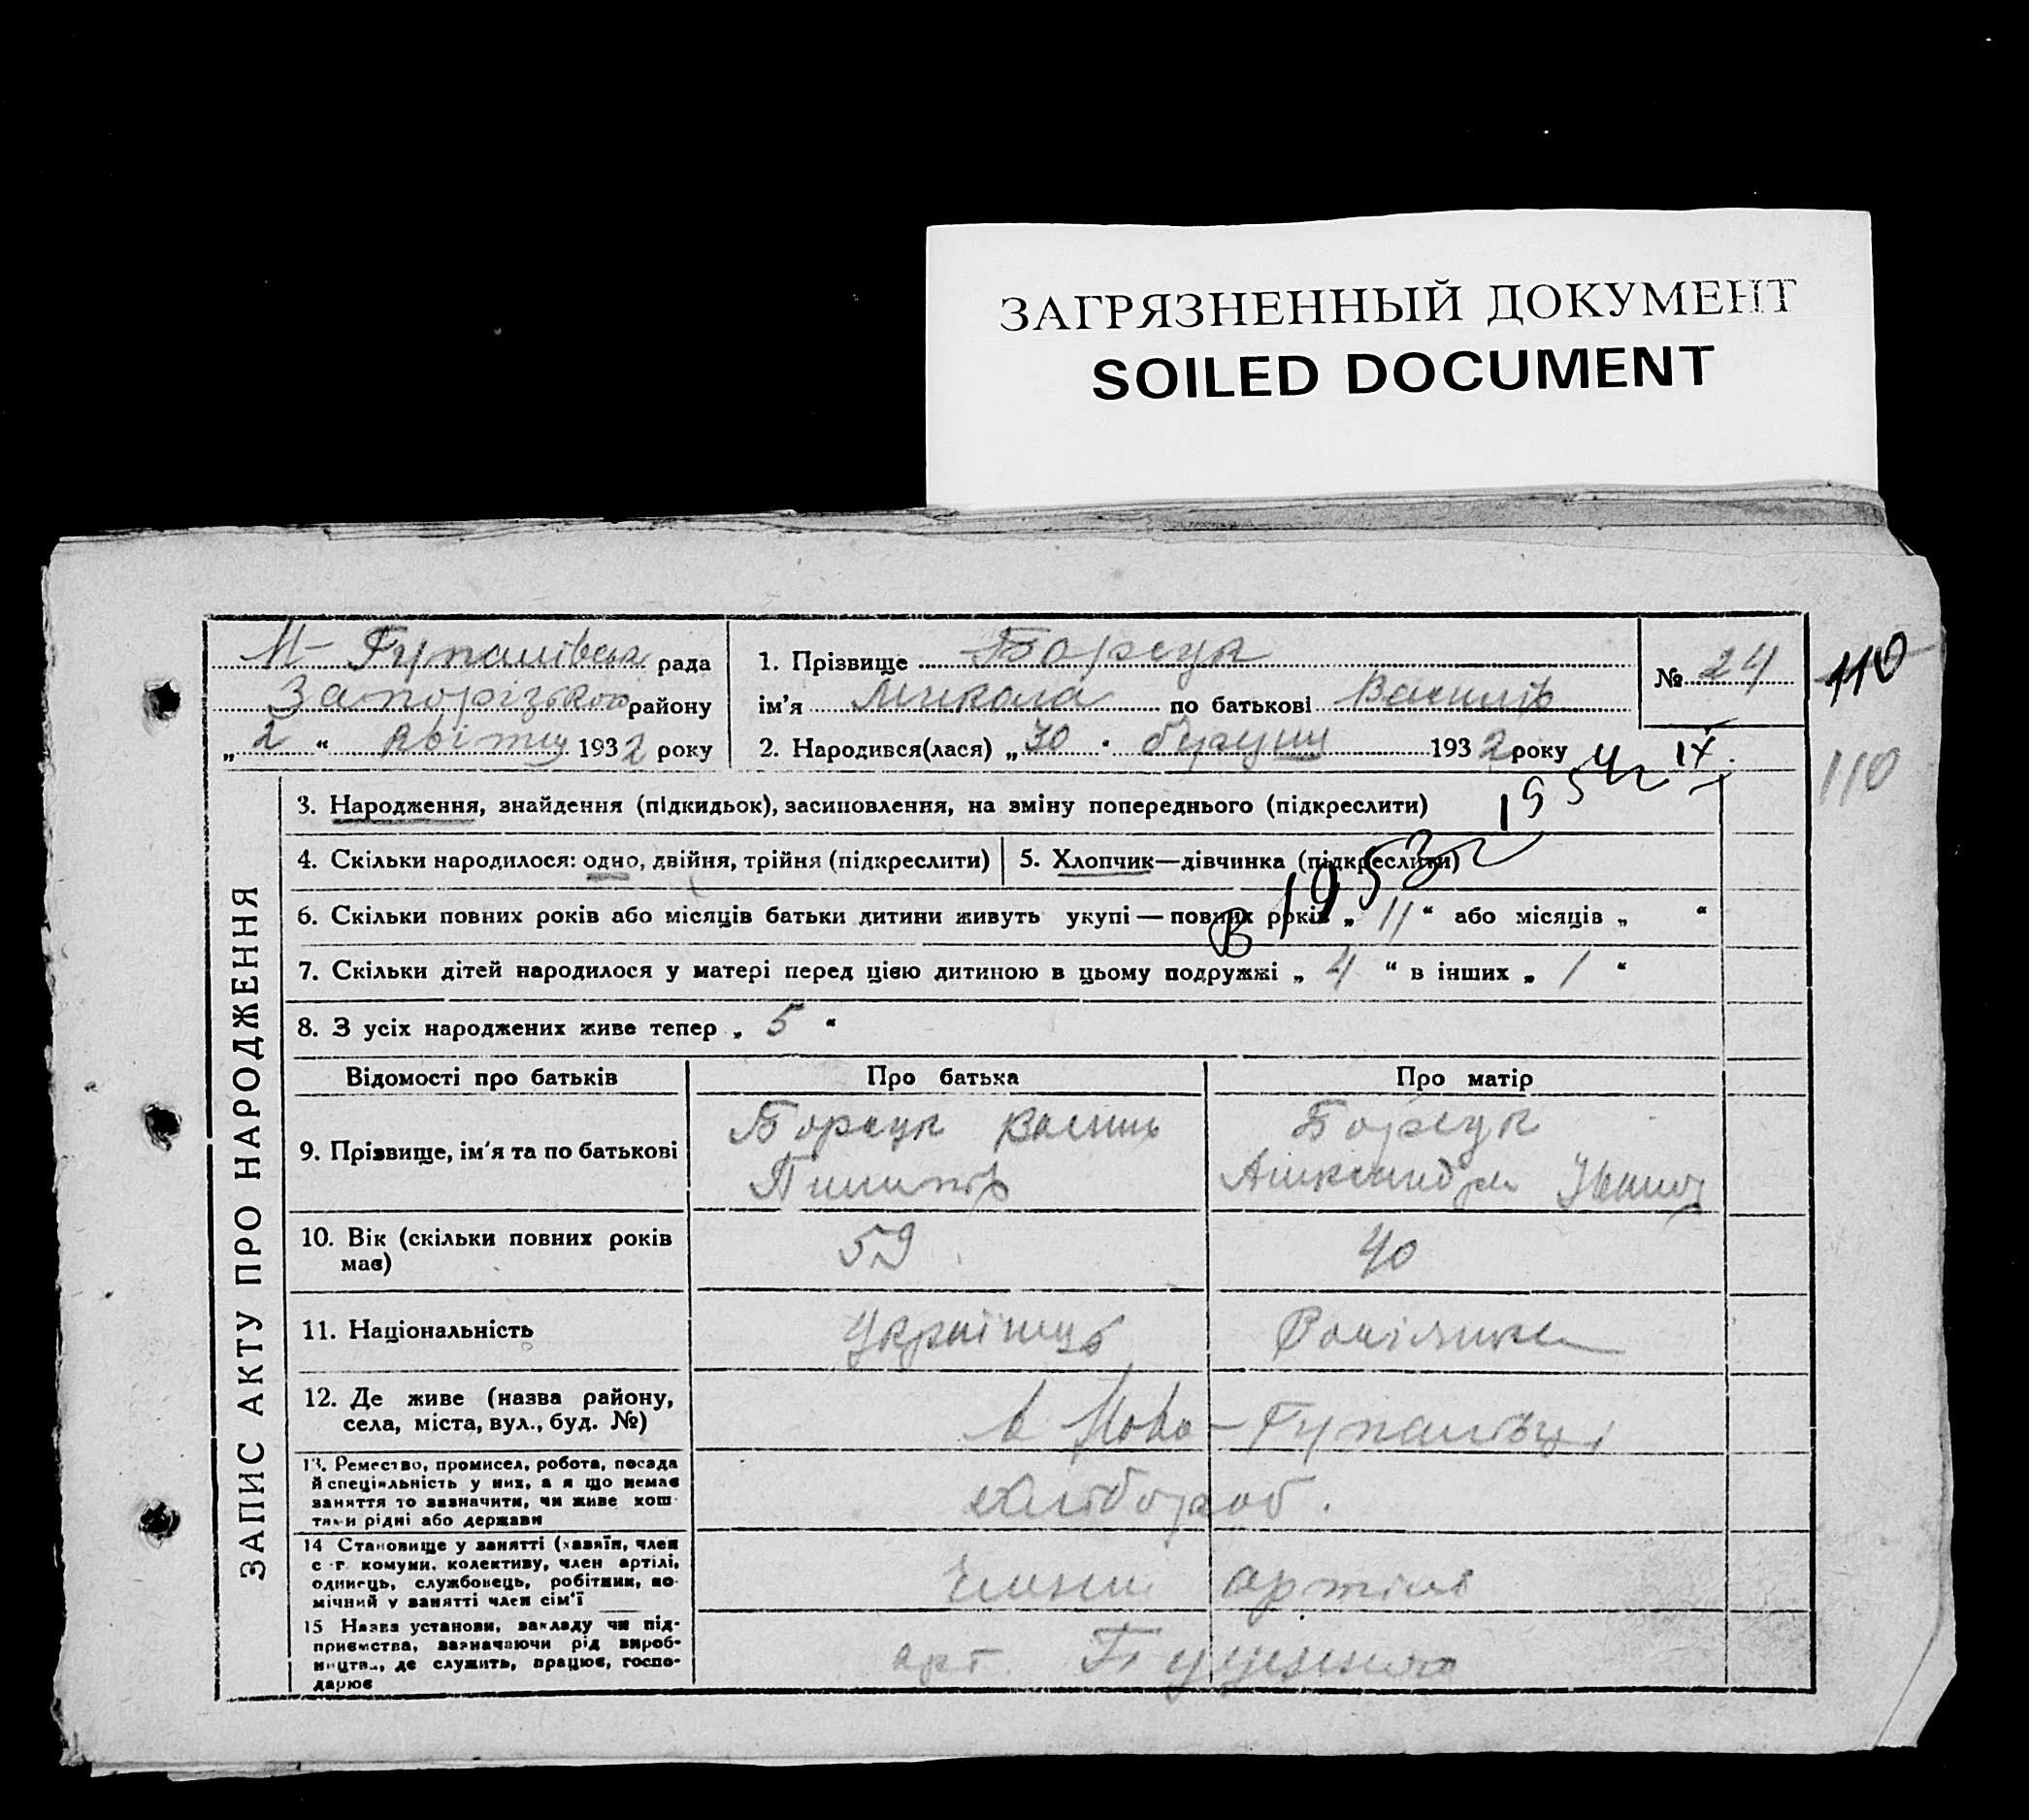 ЗАГРЯЗНЕННЫЙ ДОКУМЕНТ
SOILED DOCUMENT
Н-Гупалівська рада
Запорізького району
„ 2 “ квітня 1932 року
1. Прізвище Борсук
ім'я Микола по батькові Василів
2. Народився(лася) „ 30 “ березня 1932 року
№ 24
110
110
1954 р IX.
В 1953 р
ЗАПИС АКТУ ПРО НАРОДЖЕННЯ
3. Народження, знайдення (підкидьок), засиновлення, на зміну попереднього (підкреслити)
4. Скільки народилося: одно, двійня, трійня (підкреслити)
5. Хлопчик—дівчинка (підкреслити)
6. Скільки повних років або місяців батьки дитини живуть укупі — повних років „ 11 “ або місяців „ “
7. Скільки дітей народилося у матері перед цією дитиною в цьому подружжі „ 4 “ в інших „ 1 “
8. З усіх народжених живе тепер „ 5 “
Відомості про батьків Про батька Про матір
9. Прізвище, ім'я та по батькові
Борсук Василь
Пилипів
Борсук
Александра Іванів
10. Вік (скільки повних років
має)
59
40
11. Національність
Українець
12. Де живе (назва району,
села, міста, вул., буд. №)
в Ново-Гупалівці
13. Ремество, промисел, робота, посада
й спеціяльність у них, а я що немає
заняття то зазначити, чи живе кош
тами рідні або держави
хлібороб.
14 Становище у занятті (хазяїн, член
с.-г. комуни, колективу, член артілі,
одинець, службовець, робітник, по-
мічний у занятті член сім'ї
члени артілі
15 Назва установи, закладу чи під-
приємства, зазначаючи рід вироб-
ництва, де служить, працює, госпо-
дарює
арт.